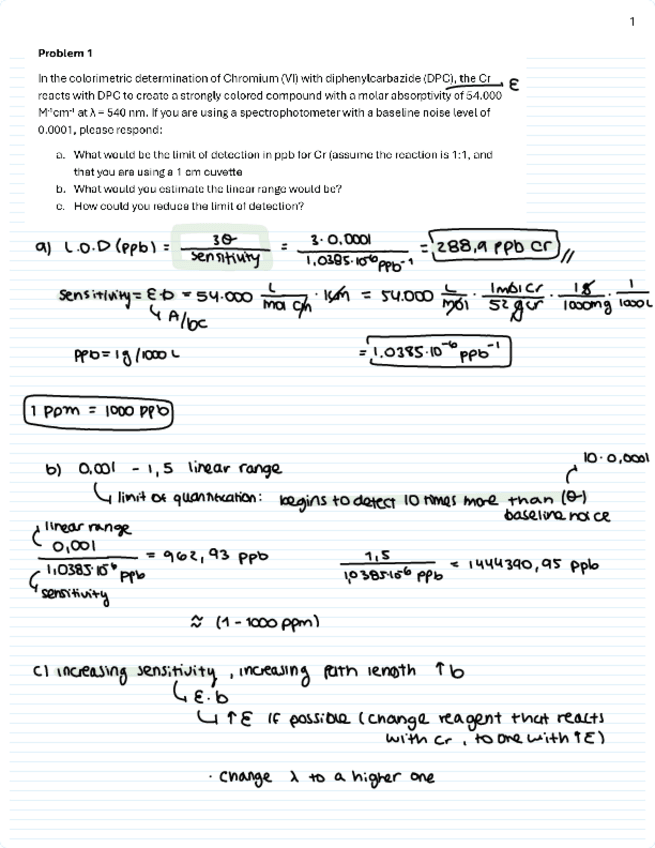 1
Problem 1
In the colorimetric determination of Chromium (VI) with diphenylcarbazide (DPC), the Cr
reacts with DPC to create a strongly colored compound with a molar absorptivity of 54.000
M⁻¹cm⁻¹ at λ = 540 nm. If you are using a spectrophotometer with a baseline noise level of
0.0001, please respond:
ε
a. What would be the limit of detection in ppb for Cr (assume the reaction is 1:1, and
that you are using a 1 cm cuvette
b. What would you estimate the linear range would be?
c. How could you reduce the limit of detection?
a) L.O.D (ppb) = 3θ / sensitivity = 3·0.0001 / 1,0385·10⁻⁶ ppb⁻¹ = 288,9 ppb Cr //
sensitivity = ε·b = 54.000 L / mol cm · 1cm = 54.000 L / mol · 1mol Cr / 52 g Cr · 1g / 1000mg · 1 / 1000L
↳ A/bc
ppb = 1g / 1000 L
= 1.0385·10⁻⁶ ppb⁻¹
1 ppm = 1000 ppb
b) 0,001 - 1,5 linear range
10·0,0001
↳ limit of quantification: begins to detect 10 times more than (θ)
baseline noice
linear range
0,001 / 1,0385·10⁻⁶ ppb = 962,93 ppb
1,5 / 1,0385·10⁻⁶ ppb = 1444390,95 ppb
sensitivity
≈ (1 - 1000 ppm)
c) increasing sensitivity, increasing path length ↑b
↳ ε·b
↳ ↑ε if possible (change reagent that reacts
with Cr, to one with ↑ε)
· change λ to a higher one